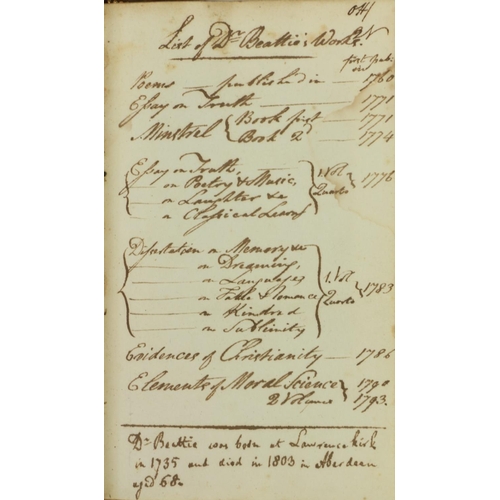 List of Dr Beattie's Works.
first pub:
Poems — published in — 1760
Essay on Truth — 1771
Minstrel { Book first — 1771
Book 2d — 1774
Essay on Truth,
— on Poetry & Music,
— on Laughter &c
— on Classical Learng
1 Vol Quarto } 1776
Dissertation on Memory &c
— on Dreaming,
— on Languages
— on Fable & Romance
— on Kindred
— on Sublimity
1. Vol Quarto } 1783
Evidences of Christianity — 1786
Elements of Moral Science } 1790
2 Volumes } 1793.
Dr Beattie was born at Lawrencekirk
in 1735 and died in 1803 in Aberdeen
aged 68.